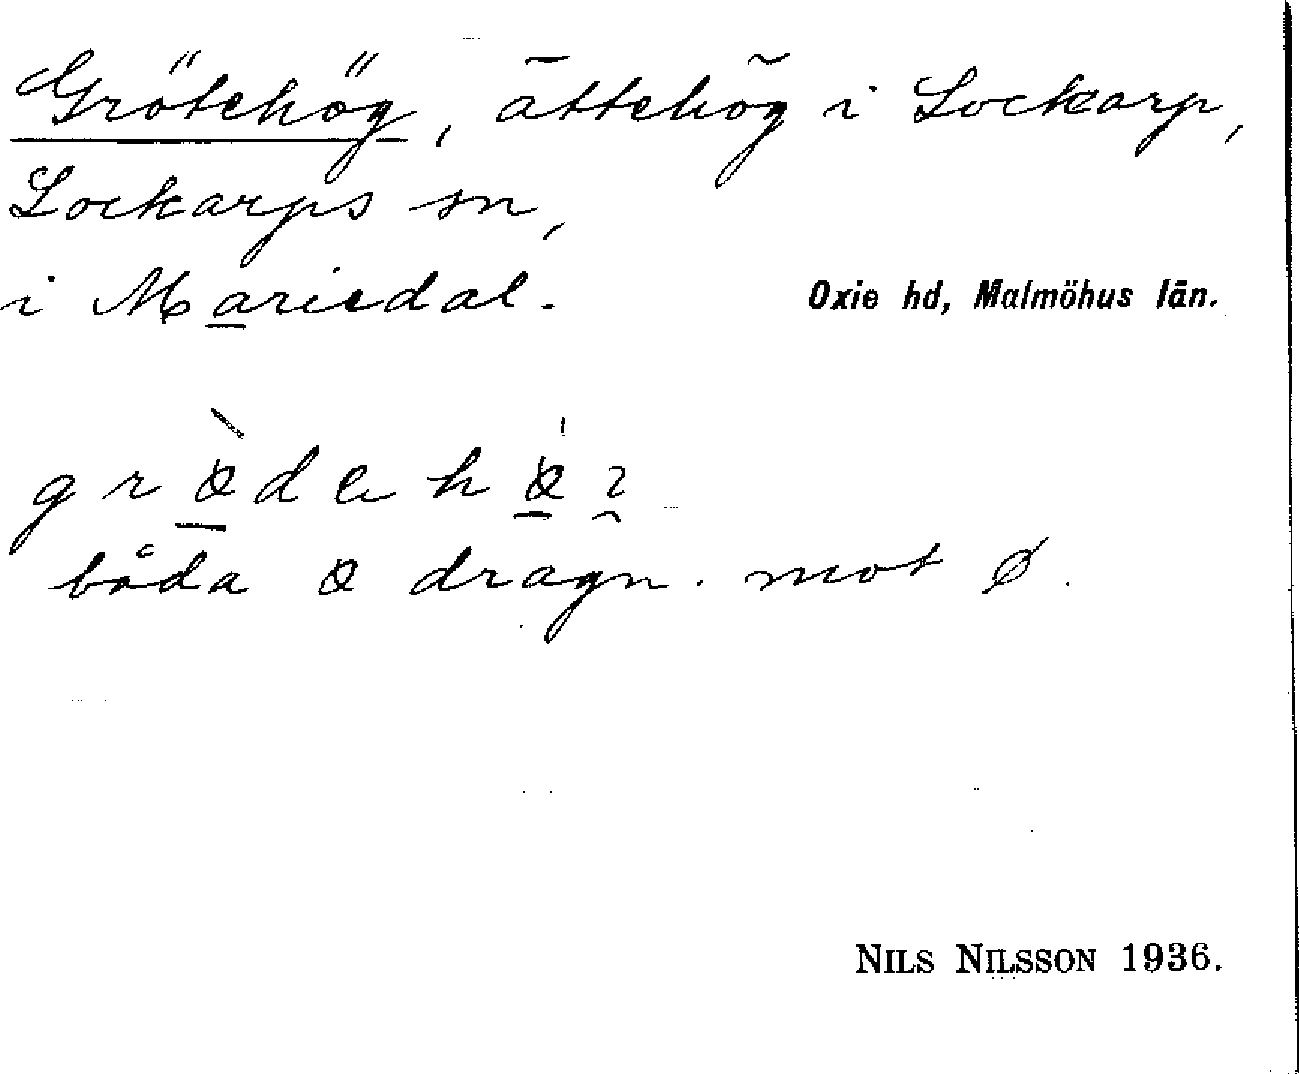 Grötehög, ättehög i Lockarp,
Lockarps sn,
i Mariedal.
Oxie hd, Malmöhus län.
båda dragn. mot ø.
NILS NILSSON 1936.